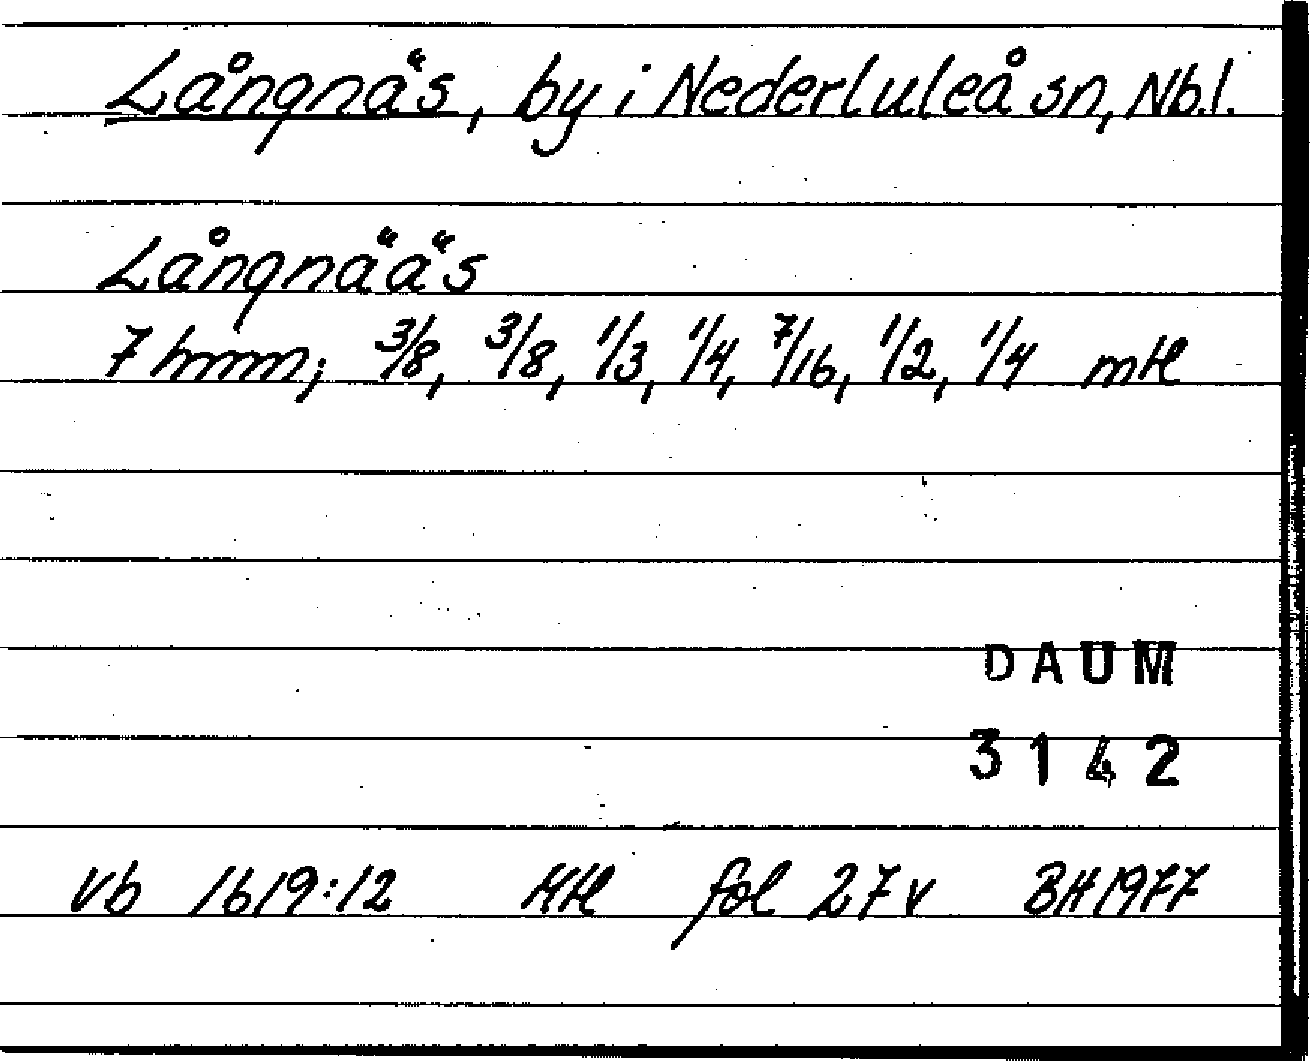 Långnäs, by i Nederluleå sn, Nb.l.
Långnääs
7 hmm; 3/8, 3/8, 1/3, 1/4, 7/16, 1/2, 1/4 mtl
DAUM
3142
Vb 1619:12 Mtl fol 27v BH1977